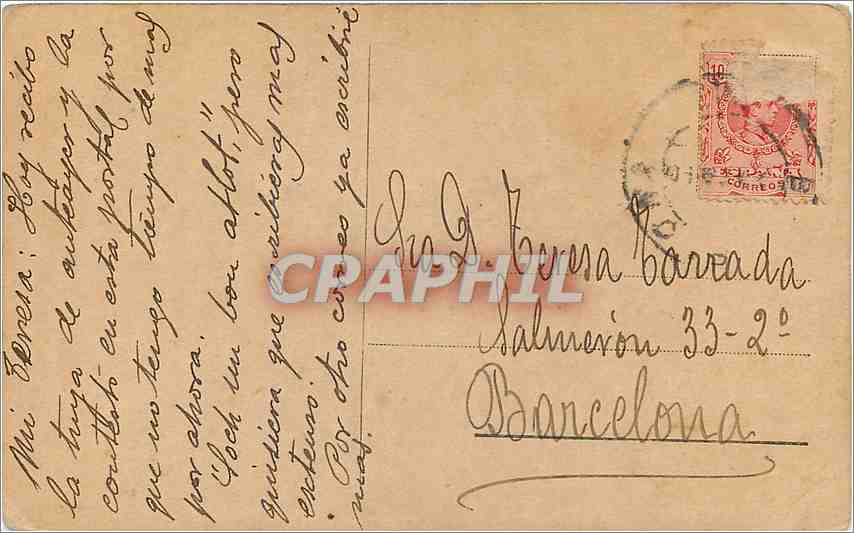 Mi Teresa: Hoy recibo
la tuya de anteayer y la
contesto en esta postal por
que no tengo tiempo de mas
por ahora.
"Soch un bon atlot", pero
quisiera que escribieras mas
extenso.
Por otro correo ya escribiré
mas.
Sra. D. Teresa Tarrada
Salmerón 33-2º
Barcelona
10
CORREOS
CPAPHIL